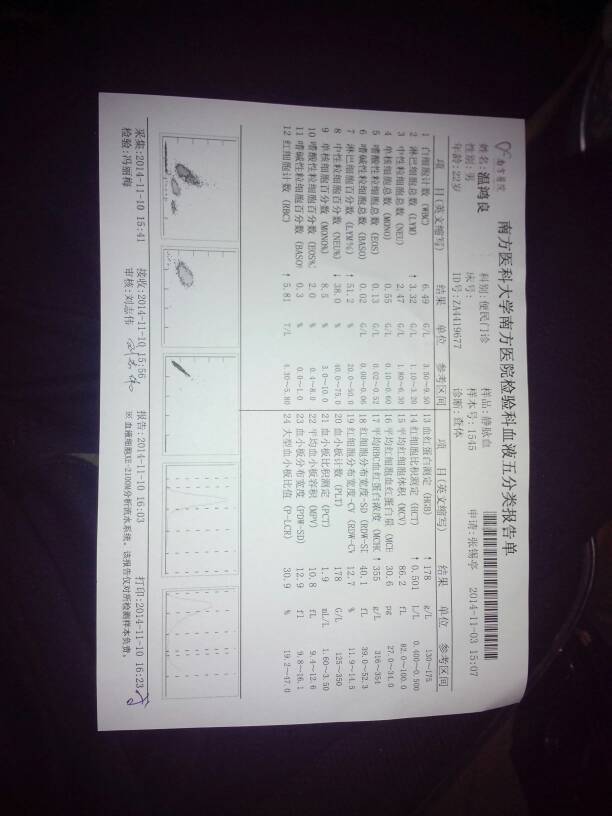 南方医院
南方医科大学南方医院检验科血液五分类报告单
姓名:温鸿良 科别:便民门诊 样品:静脉血 申请:张锡亭 2014-11-03 15:07
性别:男 床号: 样本号:1545
年龄:22岁 ID号:ZA4419677 诊断:查体
项 目(英文缩写) 结果 单位 参考区间 项 目(英文缩写) 结果 单位 参考区间
1 白细胞计数 (WBC) 6.49 G/L 3.50~9.50 13 血红蛋白测定 (HGB) ↑ 178 g/L 130~175
2 淋巴细胞总数 (LYM) ↑ 3.32 G/L 1.10~3.20 14 红细胞比积测定 (HCT) ↑ 0.501 L/L 0.400~0.500
3 中性粒细胞总数 (NEU) 2.47 G/L 1.80~6.30 15 平均红细胞体积 (MCV) 86.2 fL 82.0~100.0
4 单核细胞总数 (MONO) 0.55 G/L 0.10~0.60 16 平均红细胞血红蛋白量 (MCH 30.6 pg 27.0~34.0
5 嗜酸性粒细胞总数 (EOS) 0.13 G/L 0.02~0.52 17 平均RBC血红蛋白浓度 (MCHC ↑ 355 g/L 316~354
6 嗜碱性粒细胞总数 (BASO) 0.02 G/L 0.00~0.06 18 红细胞分布宽度-SD (RDW-SD 40.1 fL 39.0~52.3
7 淋巴细胞百分数 (LYM%) ↑ 51.2 % 20.0~50.0 19 红细胞分布宽度-CV (RDW-CV 12.7 % 11.9~14.5
8 中性粒细胞百分数 (NEU%) ↓ 38.0 % 40.0~75.0 20 血小板计数 (PLT) 178 G/L 125~350
9 单核细胞百分数 (MONO%) 8.5 % 3.0~10.0 21 血小板比积测定 (PCT) 1.9 mL/L 1.60~3.50
10 嗜酸性粒细胞百分数 (EOS% 2.0 % 0.4~8.0 22 平均血小板容积 (MPV) 10.8 fL 9.4~12.6
11 嗜碱性粒细胞百分数 (BASO% 0.3 % 0.0~1.0 23 血小板分布宽度 (PDW-SD) 12.9 fl 9.8~16.1
12 红细胞计数 (RBC) ↑ 5.81 T/L 4.30~5.80 24 大型血小板比值 (P-LCR) 30.9 % 19.2~47.0
采集:2014-11-10 15:41 接收:2014-11-10 15:56 报告:2014-11-10 16:03 打印:2014-11-10 16:23
检验:冯丽梅 审核:刘志伟 ※ 血液细胞XE-2100N分析流水系统，该报告仅对所检测样本负责。